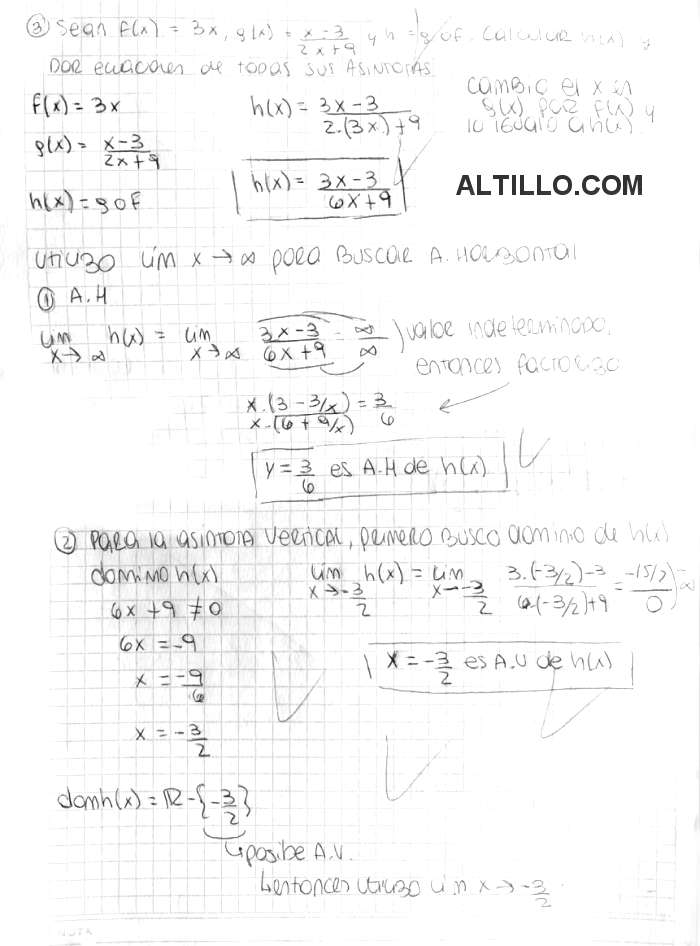 ③ Sean f(x) = 3x, g(x) = x-3/2x+9 y h = g o f. Calcular h(x) y
DAR ecuaciones de todas sus ASINTOTAS.
f(x) = 3x
g(x) = x-3/2x+9
h(x) = g o f
h(x) = 3x-3/2.(3x)+9
h(x) = 3x-3/6x+9
cambio el x en
g(x) por f(x) y
lo igualo a h(x).
ALTILLO.COM
utilizo lím x → ∞ para BUSCAR A. Horizontal
① A.H
lim x→∞ h(x) = lim x→∞ 3x-3/6x+9 = ∞/∞ ) valor indeterminado,
entonces factorizo
x.(3-3/x)/x.(6+9/x) = 3/6
y = 3/6 es A.H de h(x)
② Para la asintota vertical, primero busco dominio de h(x)
dominio h(x)
6x + 9 ≠ 0
6x = -9
x = -9/6
x = -3/2
lim x→-3/2 h(x) = lim x→-3/2 3.(-3/2)-3/6.(-3/2)+9 = -15/2/0 ) ∞
x = -3/2 es A.V de h(x)
domh(x) = ℝ - {-3/2}
↳ posibe A.V.
↳ entonces utilizo lim x → -3/2